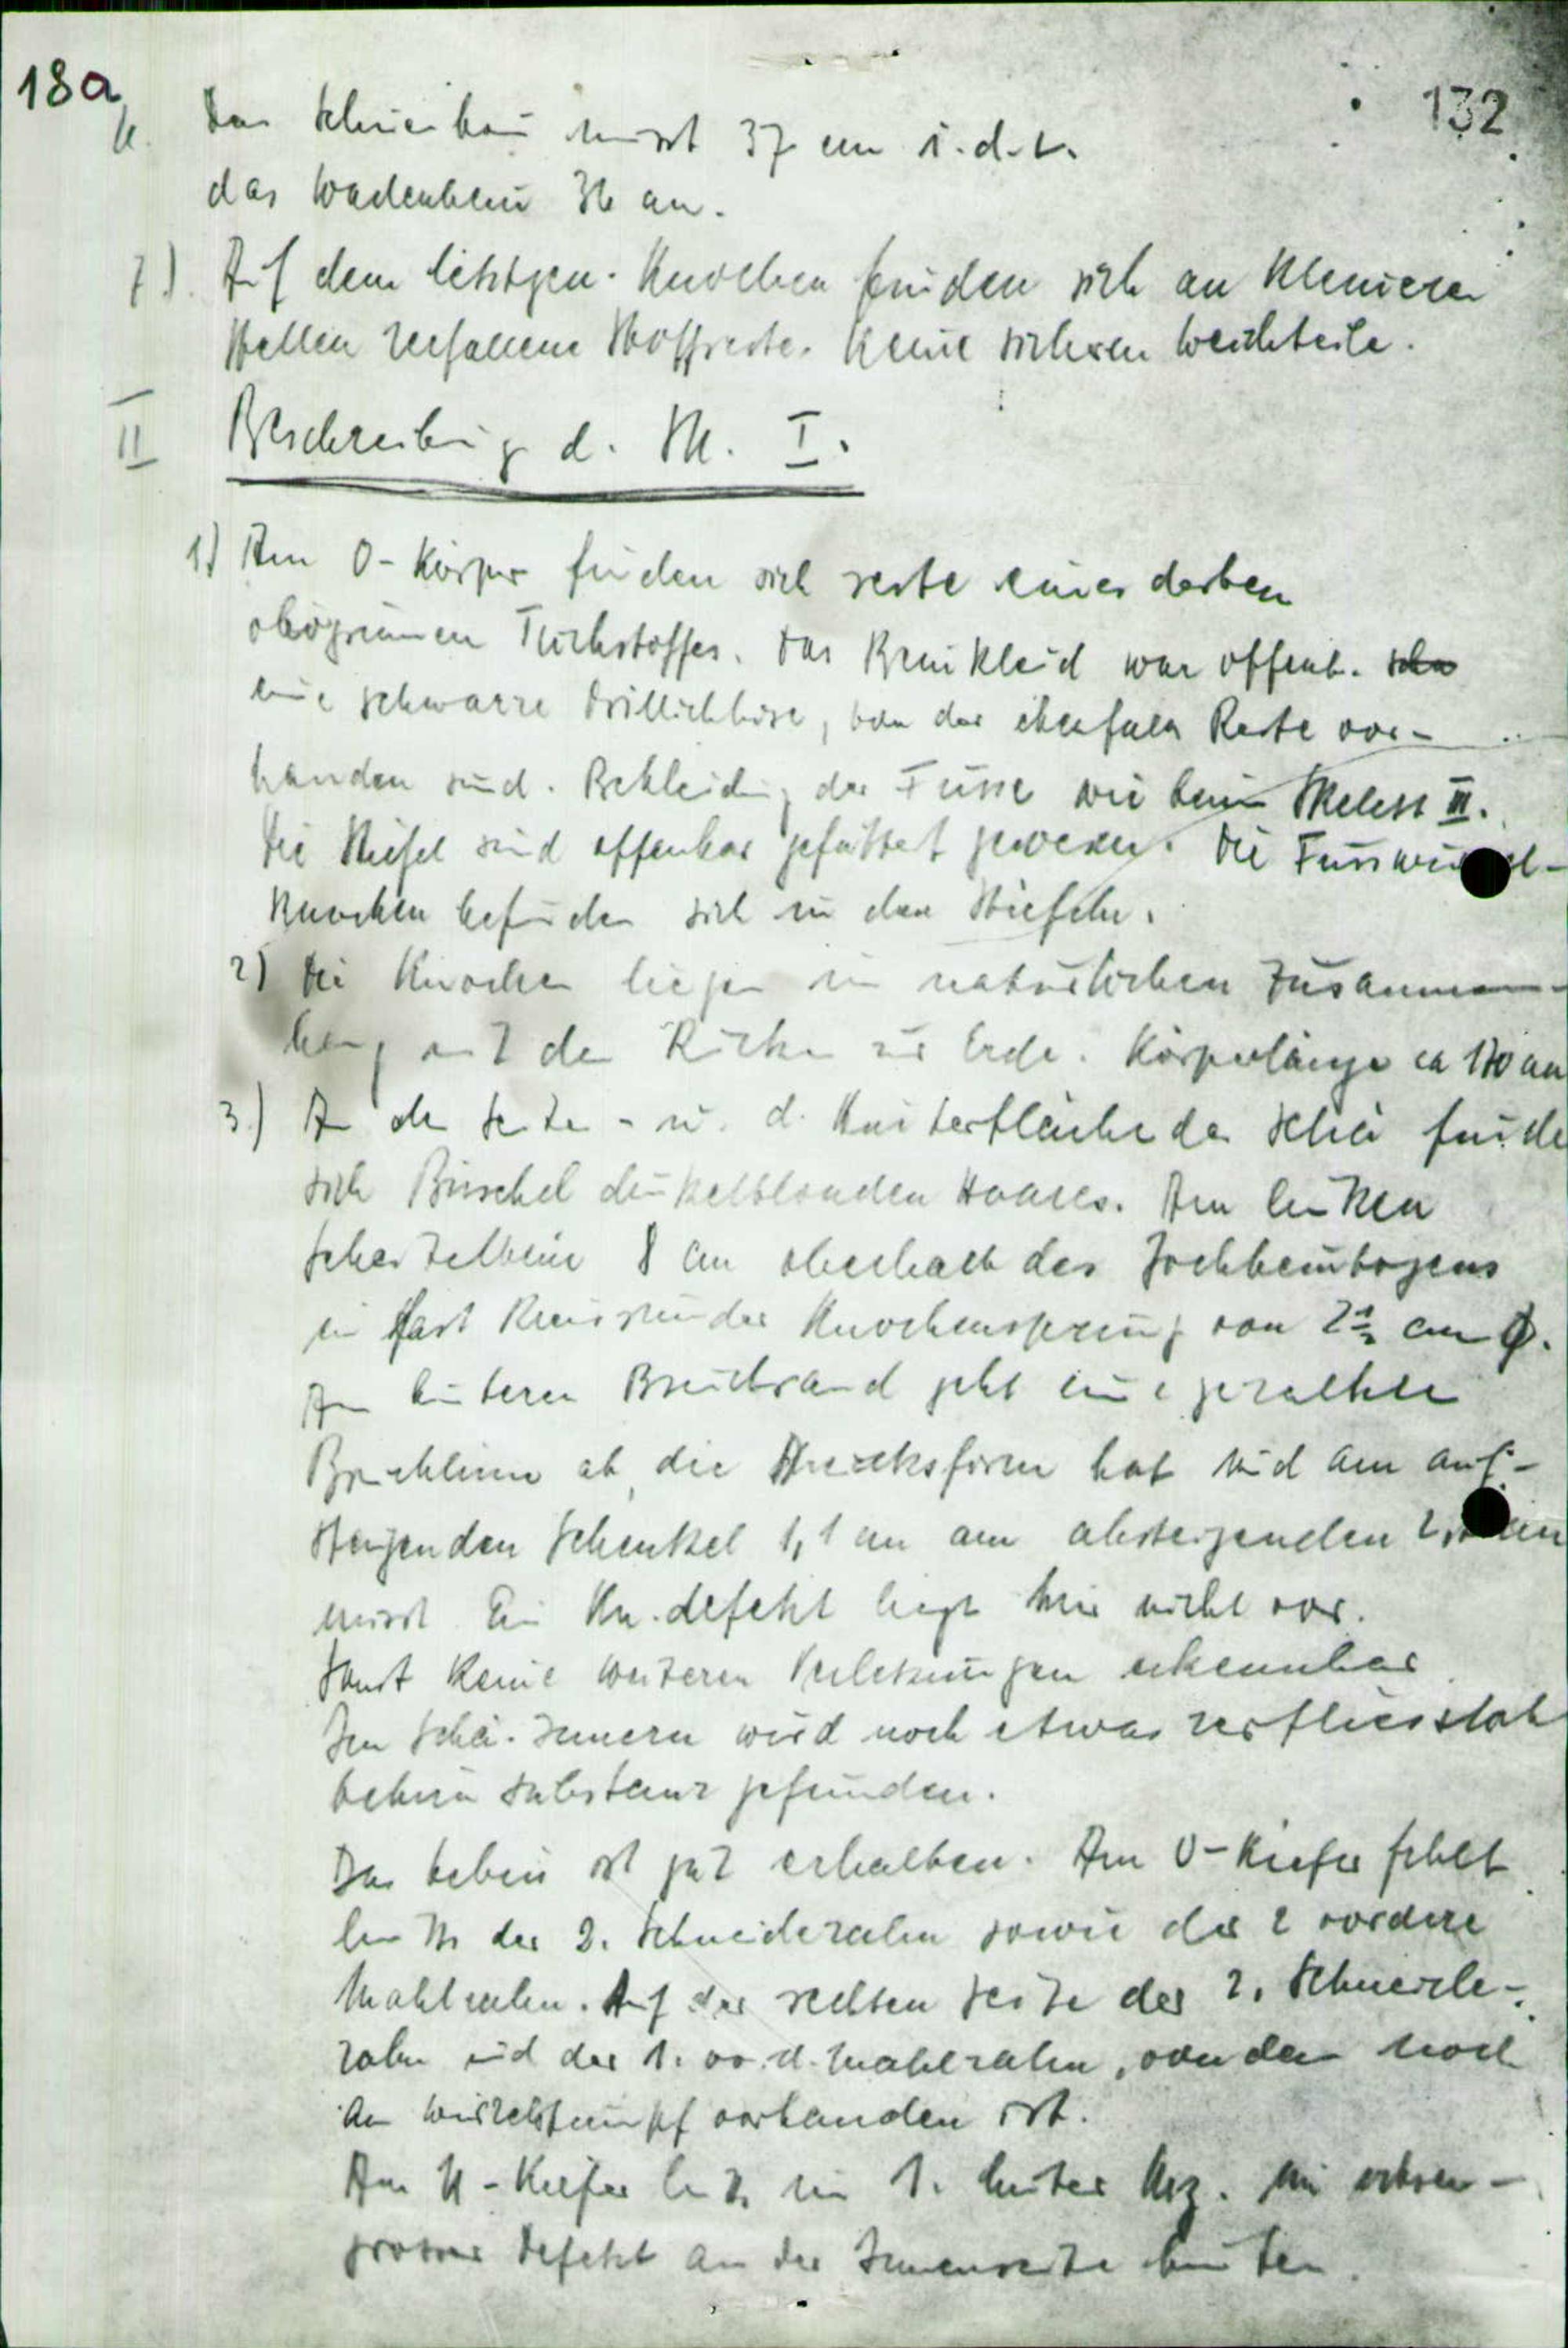 18a
132
Das Schienbein misst 37 cm i.d.L.
das Wadenbein 36 cm.
7). Auf dem letztgen. Knochen finden sich an kleineren
Stellen verfallene Stoffreste. Keine sicheren Weichteile.
II Beschreibung d. Sk. I.
1) Am O-Körper finden sich reste eines derben
olivgrünen Tuchstoffes. Das Beinkleid war offenb.
eine schwarze Drillichhose, von der ebenfalls Reste vor-
handen sind. Bekleidung der Füsse wie beim Skelett III.
Die Stiefel sind offenbar gefüttert gewesen. Die Fusswurzel-
knochen befinden sich in den Stiefeln.
2) Die Knochen liegen im natürlichen Zusammen-
hang mit dem Rücken zur Erde. Körperlänge ca 170 cm
3.) An der Seiten- u. d. Hinterfläche des Schä finden
sich Büschel dunkelblonden Haares. Am linken
Scheitelbein 8 cm oberhalb des Jochbeinbogens
ein fast kreisrunder Knochensprung von 2½ cm Ø.
Am hinteren Bruchrand geht eine gezackte
Bruchlinie ab, die Dreiecksform hat und am auf-
steigenden Schenkel 1,1 cm am absteigenden
misst. Ein Kn.defekt liegt hier nicht vor.
Sonst keine weiteren Verletzungen erkennbar
Im Schä.-Innern wird noch etwas zerfliessliche
Gehirn substanz gefunden.
Das Gebiss ist gut erhalten. Am O-Kiefer fehlt
links der 2. Schneidezahn sowie der 2 vordere
Mahlzahn. Auf der rechten Seite der 2. Schneide-
zahn und der 1. vord. Mahlzahn, von dem noch
ein Wurzelstumpf vorhanden ist.
Am U-Kiefer im 1. hinter ein
grosser Defekt an der Innenseite hinten.